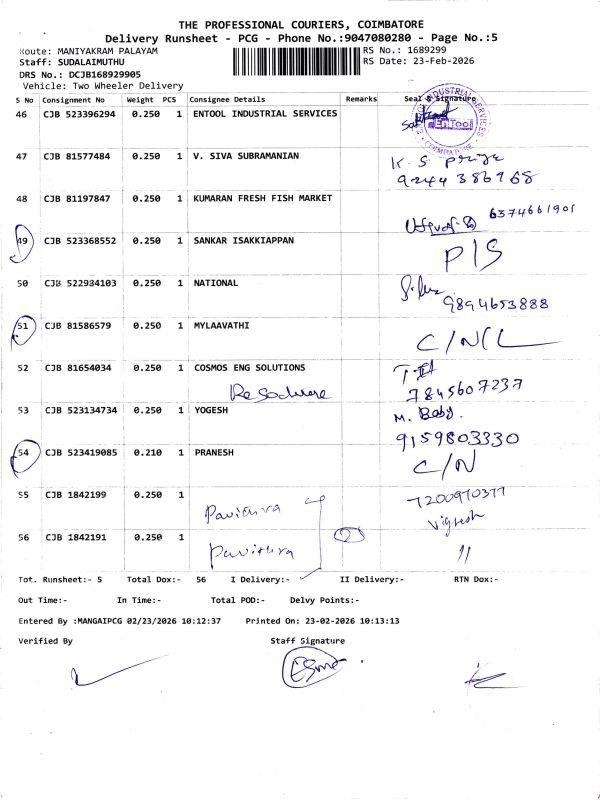 THE PROFESSIONAL COURIERS, COIMBATORE
Delivery Runsheet - PCG - Phone No.:9047080280 - Page No.:5
Route: MANIYAKRAM PALAYAM
RS No.: 1689299
Staff: SUDALAIMUTHU
RS Date: 23-Feb-2026
DRS No.: DCJB168929905
Vehicle: Two Wheeler Delivery
S No Consignment No Weight PCS Consignee Details Remarks Seal & Signature
46 CJB 523396294 0.250 1 ENTOOL INDUSTRIAL SERVICES
INDUSTRIAL SERVICES
EnTool
COIMBATORE
47 CJB 81577484 0.250 1 V. SIVA SUBRAMANIAN K. S
9244386968
48 CJB 81197847 0.250 1 KUMARAN FRESH FISH MARKET
6374661901
49 CJB 523368552 0.250 1 SANKAR ISAKKIAPPAN P/S
50 CJB 522934103 0.250 1 NATIONAL
9894653888
51 CJB 81586579 0.250 1 MYLAAVATHI C/NCL
52 CJB 81654034 0.250 1 COSMOS ENG SOLUTIONS
7845607237
53 CJB 523134734 0.250 1 YOGESH M. Baby.
9159803330
54 CJB 523419085 0.210 1 PRANESH C/N
55 CJB 1842199 0.250 1 Pavithra 7200970377
Vignesh
56 CJB 1842191 0.250 1 Pavithra 2 "
Tot. Runsheet:- 5 Total Dox:- 56 I Delivery:- II Delivery:- RTN Dox:-
Out Time:- In Time:- Total POD:- Delvy Points:-
Entered By :MANGAIPCG 02/23/2026 10:12:37 Printed On: 23-02-2026 10:13:13
Verified By Staff Signature